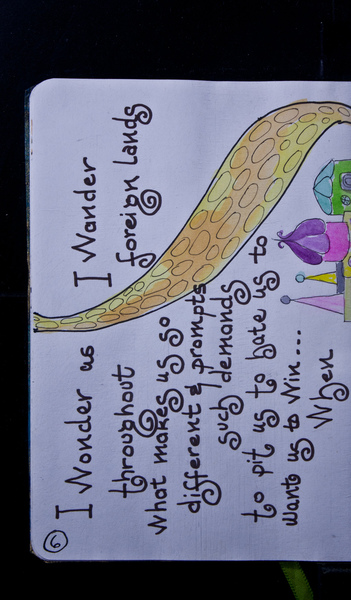 6
I Wonder as I Wander
throughout foreign Lands
What makes us so
different & prompts
such demands
to pit us to hate us to
Wants us to Win...
When